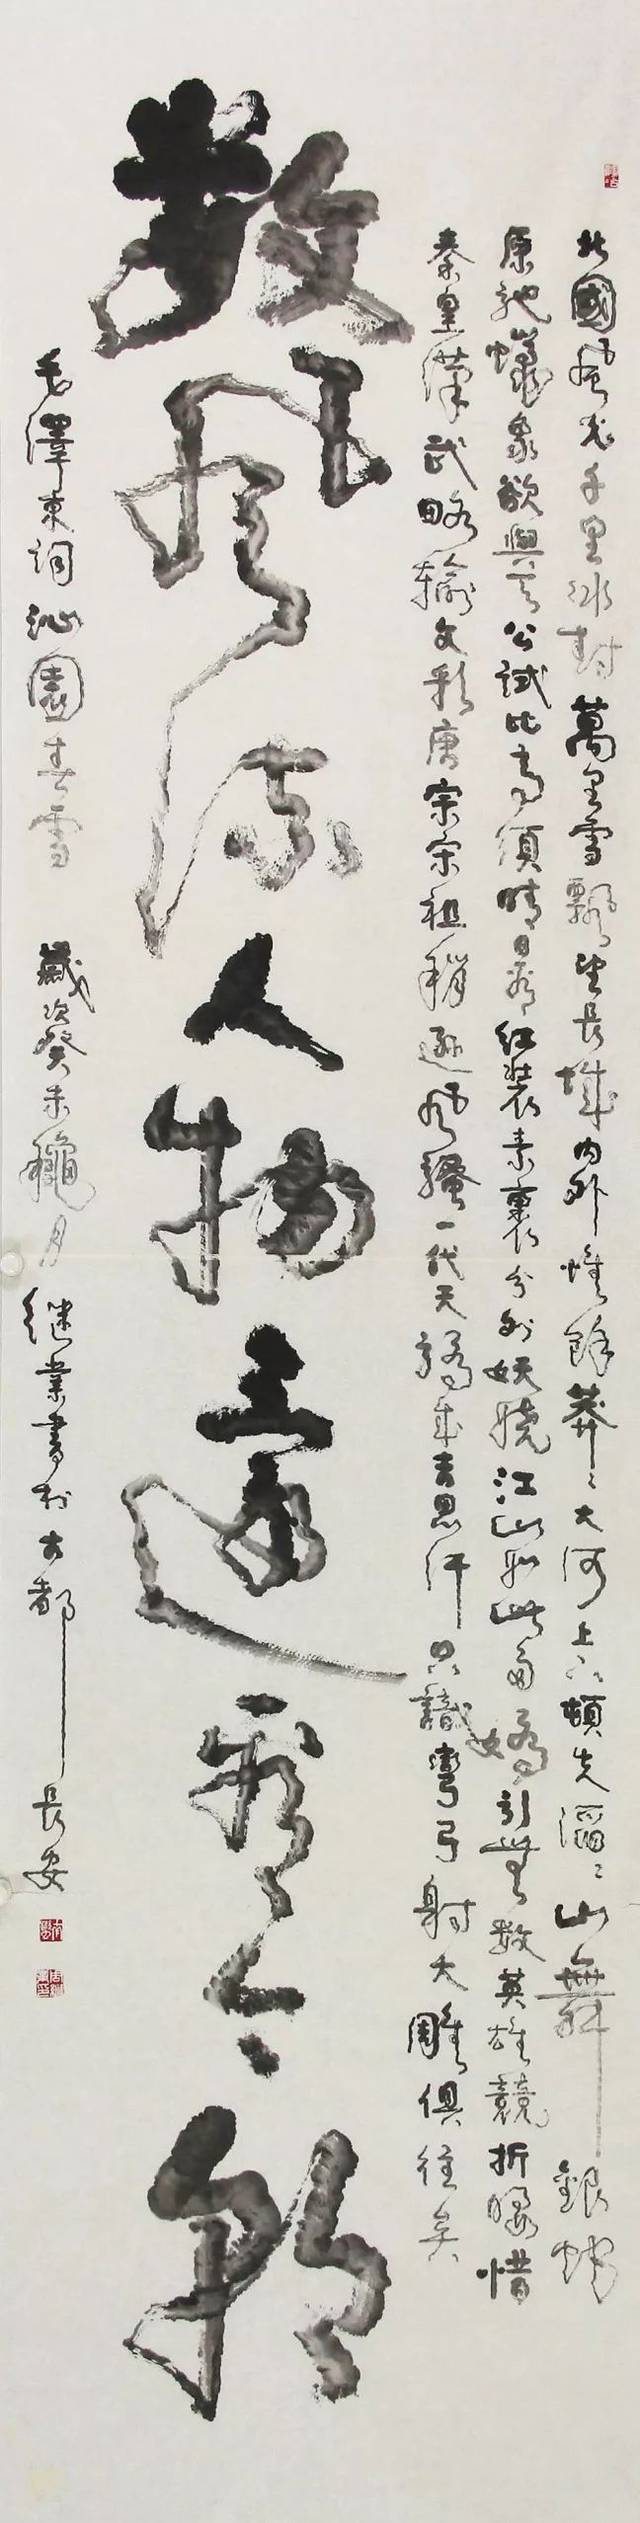 北國風光千里冰封萬里雪飄望長城內外惟餘莽〻大河上下頓失滔〻山舞銀蛇
原馳蠟象欲與天公試比高須晴日看紅裝素裹分外妖嬈江山如此多嬌引無數英雄競折腰惜
秦皇漢武略輸文彩唐宗宋祖稍遜風騷一代天驕成吉思汗只識彎弓射大雕俱往矣
數風流人物還看今朝
毛澤東詞沁園春雪 歲次癸未穐月继業書於古都長安